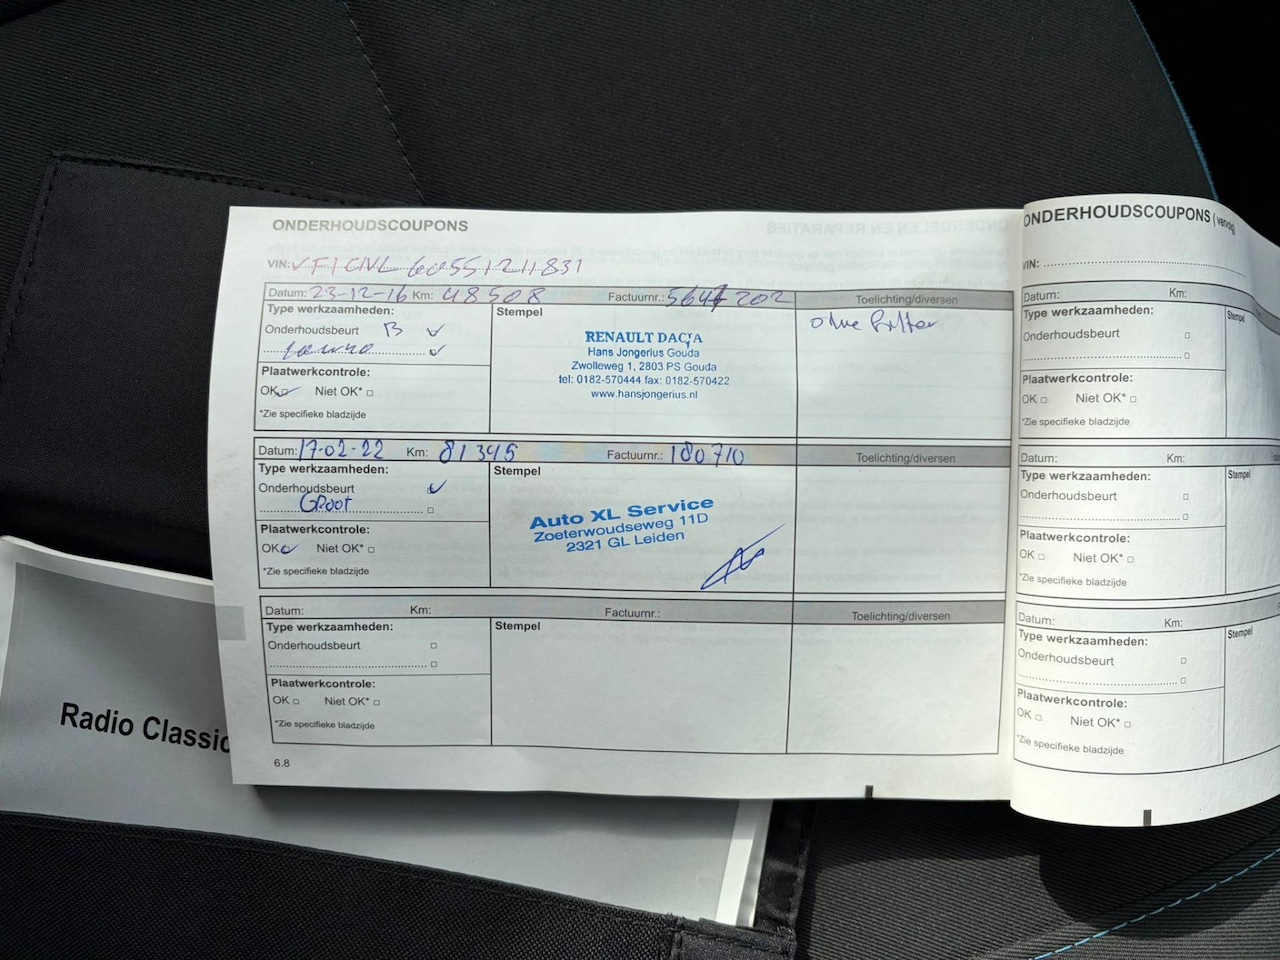 ONDERHOUDSCOUPONS
VIN:
Datum: 23-12-16 Km: 48508 Factuurnr.: 202 Toelichting/diversen
Type werkzaamheden: Stempel
Onderhoudsbeurt B
Plaatwerkcontrole:
OK Niet OK*
*Zie specifieke bladzijde
RENAULT DACIA
Hans Jongerius Gouda
Zwolleweg 1, 2803 PS Gouda
tel: 0182-570444 fax: 0182-570422
www.hansjongerius.nl
Datum: 17-02-22 Km: 81345 Factuurnr.: 180710 Toelichting/diversen
Type werkzaamheden: Stempel
Onderhoudsbeurt
Groot
Plaatwerkcontrole:
OK Niet OK*
*Zie specifieke bladzijde
Auto XL Service
Zoeterwoudseweg 11D
2321 GL Leiden
Datum: Km: Factuurnr.: Toelichting/diversen
Type werkzaamheden: Stempel
Onderhoudsbeurt
Plaatwerkcontrole:
OK Niet OK*
*Zie specifieke bladzijde
6.8
ONDERHOUDSCOUPONS (vervolg)
VIN:
Datum: Km:
Type werkzaamheden: Stempel
Onderhoudsbeurt
Plaatwerkcontrole:
OK Niet OK*
*Zie specifieke bladzijde
Datum: Km:
Type werkzaamheden: Stempel
Onderhoudsbeurt
Plaatwerkcontrole:
OK Niet OK*
*Zie specifieke bladzijde
Datum: Km:
Type werkzaamheden: Stempel
Onderhoudsbeurt
Plaatwerkcontrole:
OK Niet OK*
*Zie specifieke bladzijde
Radio Classic